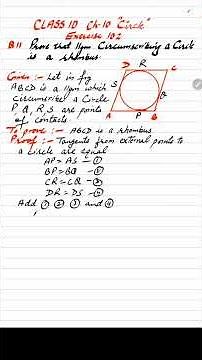 CLASS 10 Ch-10 "Circle"
Exercise 10.2
Q11 Prove that llgm Circumscribing a Circle
is a rhombus.
Given :- Let in fig
ABCD is a llgm which
Circumscribes a Circle
P, Q, R, S are points
of contacts.
D R C
S Q
A P B
To prove :- ABCD is a rhombus
Proof :- Tangents from external points to
a circle are equal
AP = AS - ①
BP = BQ - ②
CR = CQ - ③
DR = DS - ④
Add ① ② ③ and ④